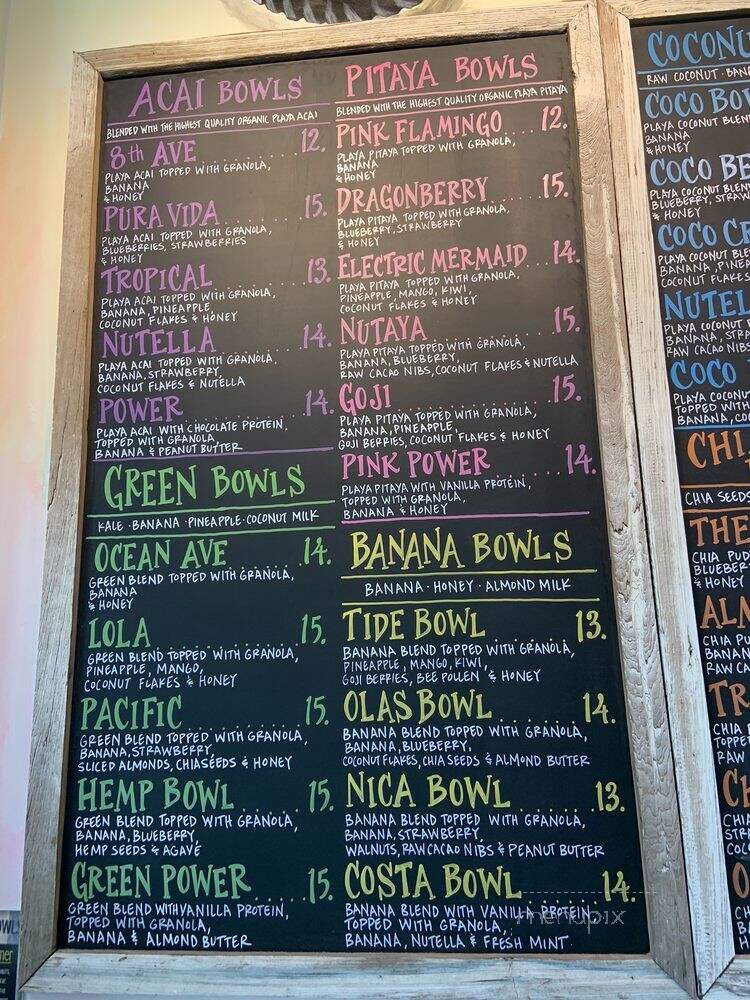 ACAI BOWLS
BLENDED WITH THE HIGHEST QUALITY ORGANIC PLAYA ACAI
8th AVE 12.
PLAYA ACAI TOPPED WITH GRANOLA,
BANANA
& HONEY
PURA VIDA 15.
PLAYA ACAI TOPPED WITH GRANOLA,
BLUEBERRIES, STRAWBERRIES
& HONEY
TROPICAL 13.
PLAYA ACAI TOPPED WITH GRANOLA,
BANANA, PINEAPPLE,
COCONUT FLAKES & HONEY
NUTELLA 14.
PLAYA ACAI TOPPED WITH GRANOLA,
BANANA, STRAWBERRY,
COCONUT FLAKES & NUTELLA
POWER 14.
PLAYA ACAI WITH CHOCOLATE PROTEIN,
TOPPED WITH GRANOLA,
BANANA & PEANUT BUTTER
GREEN BOWLS
KALE · BANANA · PINEAPPLE · COCONUT MILK
OCEAN AVE 14.
GREEN BLEND TOPPED WITH GRANOLA,
BANANA
& HONEY
LOLA 15.
GREEN BLEND TOPPED WITH GRANOLA,
PINEAPPLE, MANGO,
COCONUT FLAKES & HONEY
PACIFIC 15.
GREEN BLEND TOPPED WITH GRANOLA,
BANANA, STRAWBERRY,
SLICED ALMONDS, CHIA SEEDS & HONEY
HEMP BOWL 15.
GREEN BLEND TOPPED WITH GRANOLA,
BANANA, BLUEBERRY,
HEMP SEEDS & AGAVE
GREEN POWER 15.
GREEN BLEND WITH VANILLA PROTEIN,
TOPPED WITH GRANOLA,
BANANA & ALMOND BUTTER
PITAYA BOWLS
BLENDED WITH THE HIGHEST QUALITY ORGANIC PLAYA PITAYA
PINK FLAMINGO 12.
PLAYA PITAYA TOPPED WITH GRANOLA,
BANANA
& HONEY
DRAGONBERRY 15.
PLAYA PITAYA TOPPED WITH GRANOLA,
BLUEBERRY, STRAWBERRY
& HONEY
ELECTRIC MERMAID 14.
PLAYA PITAYA TOPPED WITH GRANOLA,
PINEAPPLE, MANGO, KIWI,
COCONUT FLAKES & HONEY
NUTAYA 15.
PLAYA PITAYA TOPPED WITH GRANOLA,
BANANA, BLUEBERRY,
RAW CACAO NIBS, COCONUT FLAKES & NUTELLA
GOJI 15.
PLAYA PITAYA TOPPED WITH GRANOLA,
BANANA, PINEAPPLE,
GOJI BERRIES, COCONUT FLAKES & HONEY
PINK POWER 14.
PLAYA PITAYA WITH VANILLA PROTEIN,
TOPPED WITH GRANOLA,
BANANA & HONEY
BANANA BOWLS
BANANA · HONEY · ALMOND MILK
TIDE BOWL 13.
BANANA BLEND TOPPED WITH GRANOLA,
PINEAPPLE, MANGO, KIWI,
GOJI BERRIES, BEE POLLEN & HONEY
OLAS BOWL 14.
BANANA BLEND TOPPED WITH GRANOLA,
BANANA, BLUEBERRY,
COCONUT FLAKES, CHIA SEEDS & ALMOND BUTTER
NICA BOWL 13.
BANANA BLEND TOPPED WITH GRANOLA,
BANANA, STRAWBERRY,
WALNUTS, RAW CACAO NIBS & PEANUT BUTTER
COSTA BOWL 14.
BANANA BLEND WITH VANILLA PROTEIN,
TOPPED WITH GRANOLA,
BANANA, NUTELLA & FRESH MINT
menupix
RAW COCONUT · BAN
PLAYA COCONUT BLEN
BANANA
& HONEY
COCO BE
PLAYA COCONUT BLEN
BLUEBERRY, STRAW
& HONEY
COCO CR
PLAYA COCONUT BLE
BANANA, PINEA
COCONUT FLAKES
NUTEL
PLAYA COCONUT
BANANA, STR
RAW CACAO NIBS
COCO
PLAYA COCONUT
TOPPED WITH
BANANA, CO
CHI
CHIA SEEDS
THE
CHIA PUD
BLUEBERR
& HONEY